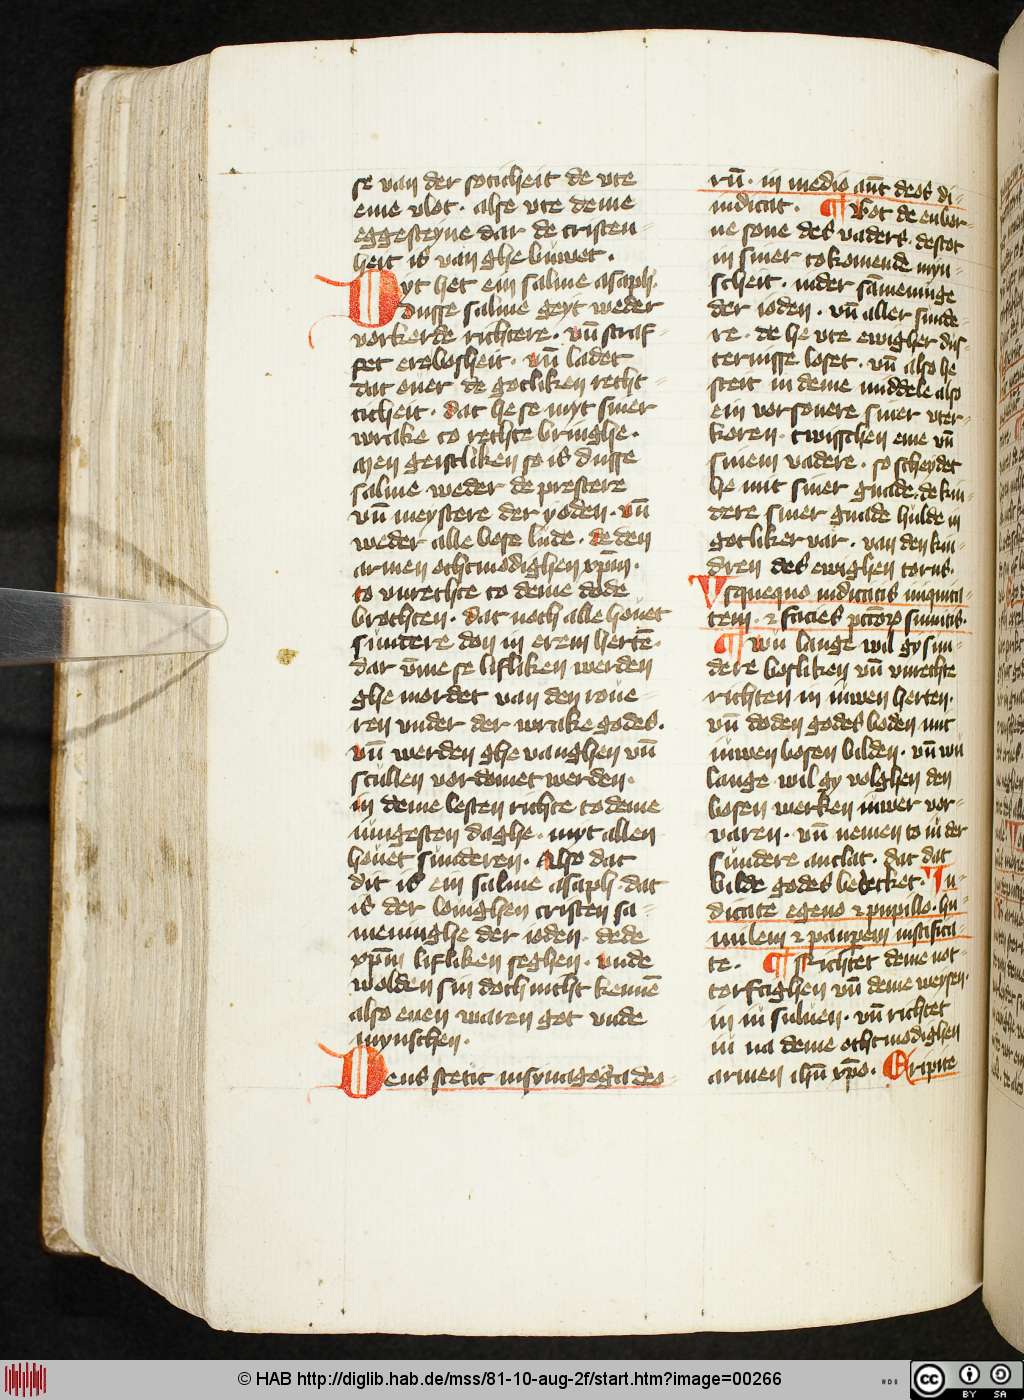 se van der soticheit de vte
eme vlot· alse vte deme
eggesteyne dar de cristen-
heit is van ghe buwet·
Dyt het ein salme asaph·
dusse salme geyt weder
vorkerde richtere· vn̄ straf-
fet ere bosheit· vn̄ ladet
dat ouer de gotliken recht-
ticheit· dat he se myt siner
wrake to rechte bringhe·
Men geistliken so is dusse
salme weder de prestere
vn̄ meystere der yoden· vn̄
weder alle bose lude· de den
armen othmodighen xp̄m·
to vnrechte to deme dode
brochten· dat noch alle houet
sundere don in erem herte̅·
dar v̄me se lifliken werden
ghe mordet van den roue-
ren vnder der wrake godes·
vn̄ werden ghe vanghen vn̄
scullen vordomet werden·
in deme lesten richte to deme
iungesten daghe· myt allen
houet sunderen· Also dat
dit is ein salme asaph· dat
is der louighen cristen sa-
meninghe der ioden· de de
xp̄m lifliken seghen· vnde
wolden sin doch nicht kenne̅
also euen waren got vnde
mynschen·
Deus stetit in synagoga deo-
ru̅· in medio au̅t deos di-
iudicat· ¶ Got de enbor-
ne sone des vaders· de stot
in siner tokomende myn-
scheit· in der sa̅meninge
der ioden· vn̄ aller sunde-
re· de he vte ewigher dus-
ternisse loset· vn̄ also he
steit in deme middele also
ein vorsonere siner vter-
koren· twisschen eme vn̄
sinem vadere· so scheydet
he mit siner gnade· de kin-
dere siner gnade hulde in
gotliker var· van den kin-
dren des ewighen torns·
Vsquequo iudicatis iniquita-
tem· ⁊ facies pcc̅oꝝ sumitis·
¶ Wu lange wil gy sun-
dere bosliken vn̄ vnrechte
richten in iuwen herten·
vn̄ doden godes boden mit
iuwen bosen bilden· vn̄ wu
lange wil gy volghen den
bosen werken iuwer vor-
varen· vn̄ nemen to iu der
sundere antlat· dat dat
bilde godes bedecket· Iu-
dicate egeno ⁊ pupillo· hu-
milem ⁊ paupem iustifica-
te· ¶ Richtet deme not-
torftighen vn̄ deme weysen·
in iu suluen· vn̄ richtet
iu na deme othmodighen
armen ihu̅ xp̄o· Eripite
© HAB http://diglib.hab.de/mss/81-10-aug-2f/start.htm?image=00266
BY SA